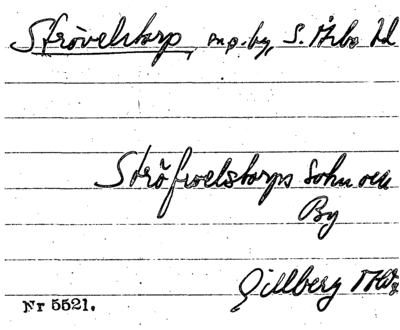 Strövelstorp, sn o. by, S. Åsbo hd
Ströfwelstorps Sohn och
By
Gillberg
Nr 5521.